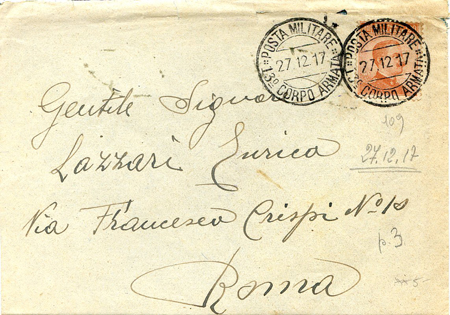 POSTA MILITARE
27.12.17
13º CORPO ARMATA
POSTA MILITARE
27.12.17
13º CORPO ARMATA
Gentile Signor
Lazzari Enrico
Via Francesco Crispi No. 10
Roma
109
27.12.17
p. 3